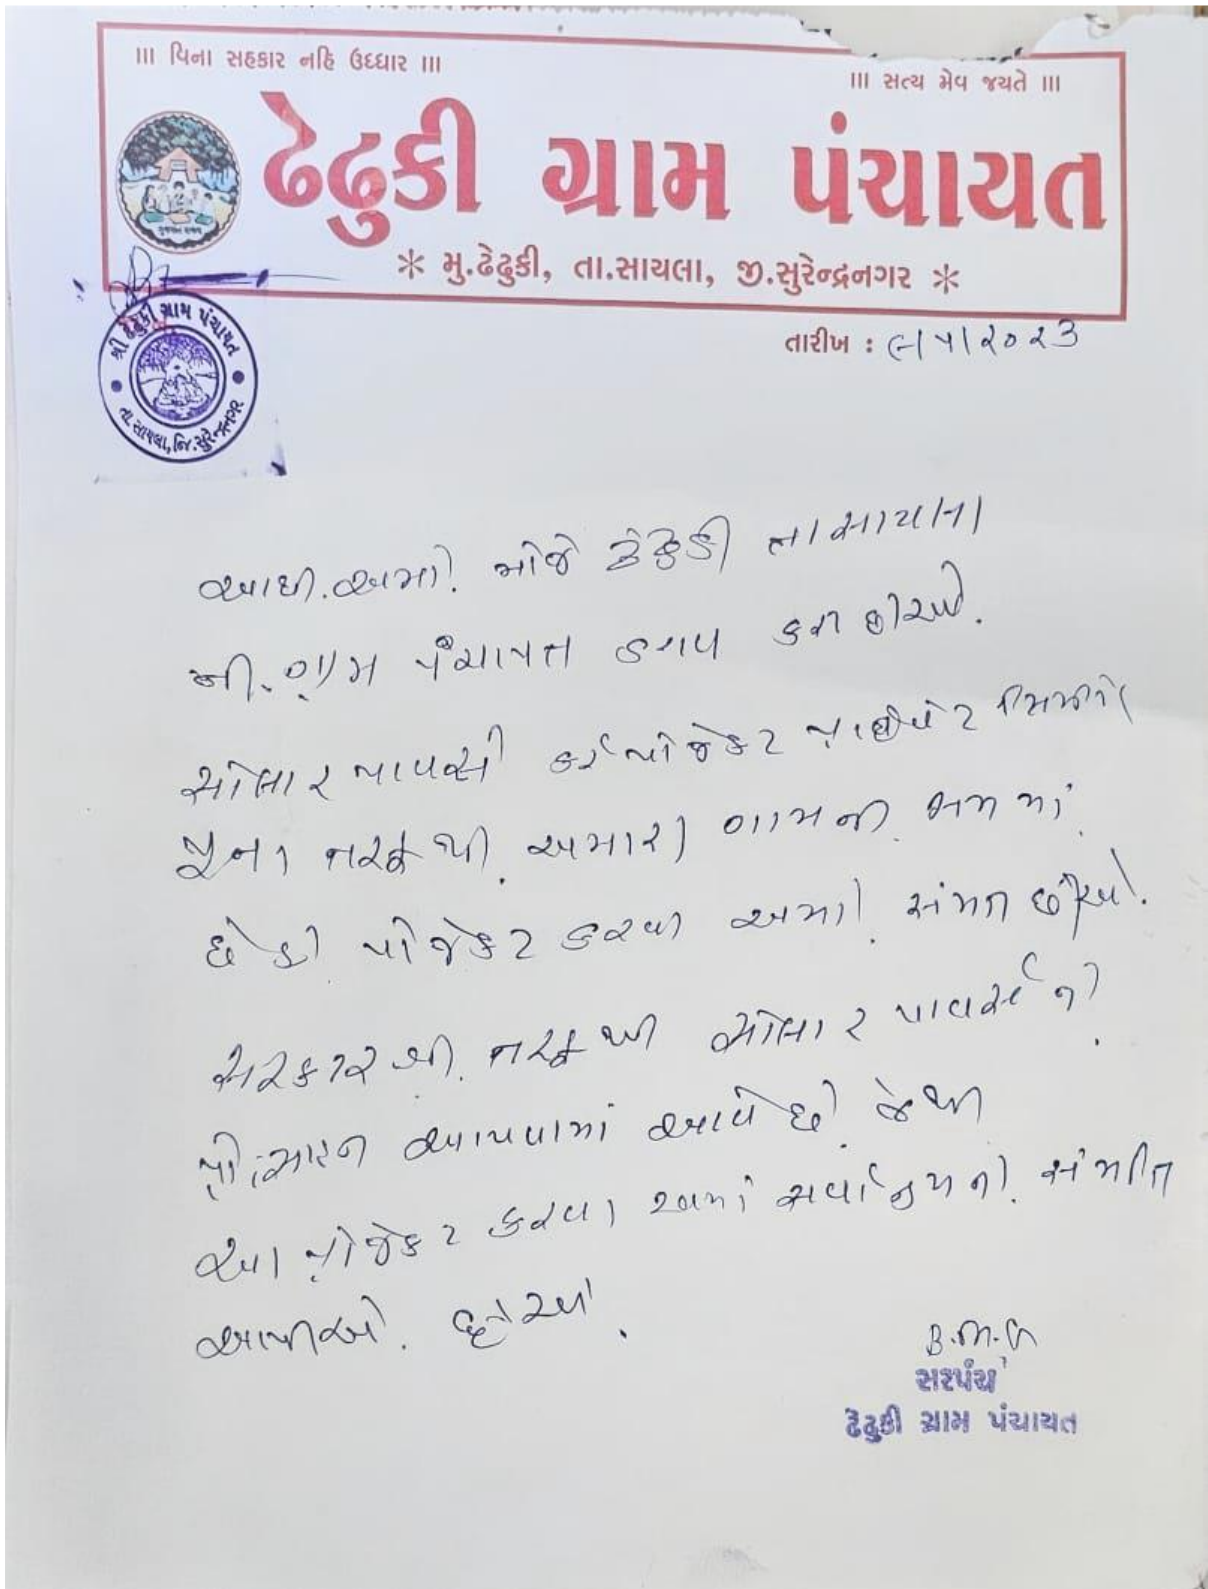 III વિના સહકાર નહિ ઉધ્ધાર III
III સત્ય મેવ જયતે III
ઢેઢુકી ગ્રામ પંચાયત
* મુ.ઢેઢુકી, તા.સાયલા, જી.સુરેન્દ્રનગર *
શ્રી ઢેઢુકી ગ્રામ પંચાયત
તા. સાયલા, જિ. સુરેન્દ્રનગર
તારીખ : ૯/૫/૨૦૨૩
આથી અમો. મોજે ઢેઢુકી તા સાયલા
ની. ગ્રામ પંચાયત ઠરાવ કરી છીએ.
સોલાર પાવર પ્રોજેકટ પ્રાઇવેટ
જુના તરફથી અમારા ગામની
પ્રોજેકટ કરવા અમો સંમત છીએ.
સરકારશ્રી તરફથી સોલાર પાવર નો
પ્રોત્સાહન આપવામાં આવે છે જેથી
આ પ્રોજેકટ કરવા અમો સર્વાનુમતે સંમતિ
આપીએ છીએ.
B.M.G
સરપંચ
ઢેઢુકી ગ્રામ પંચાયત